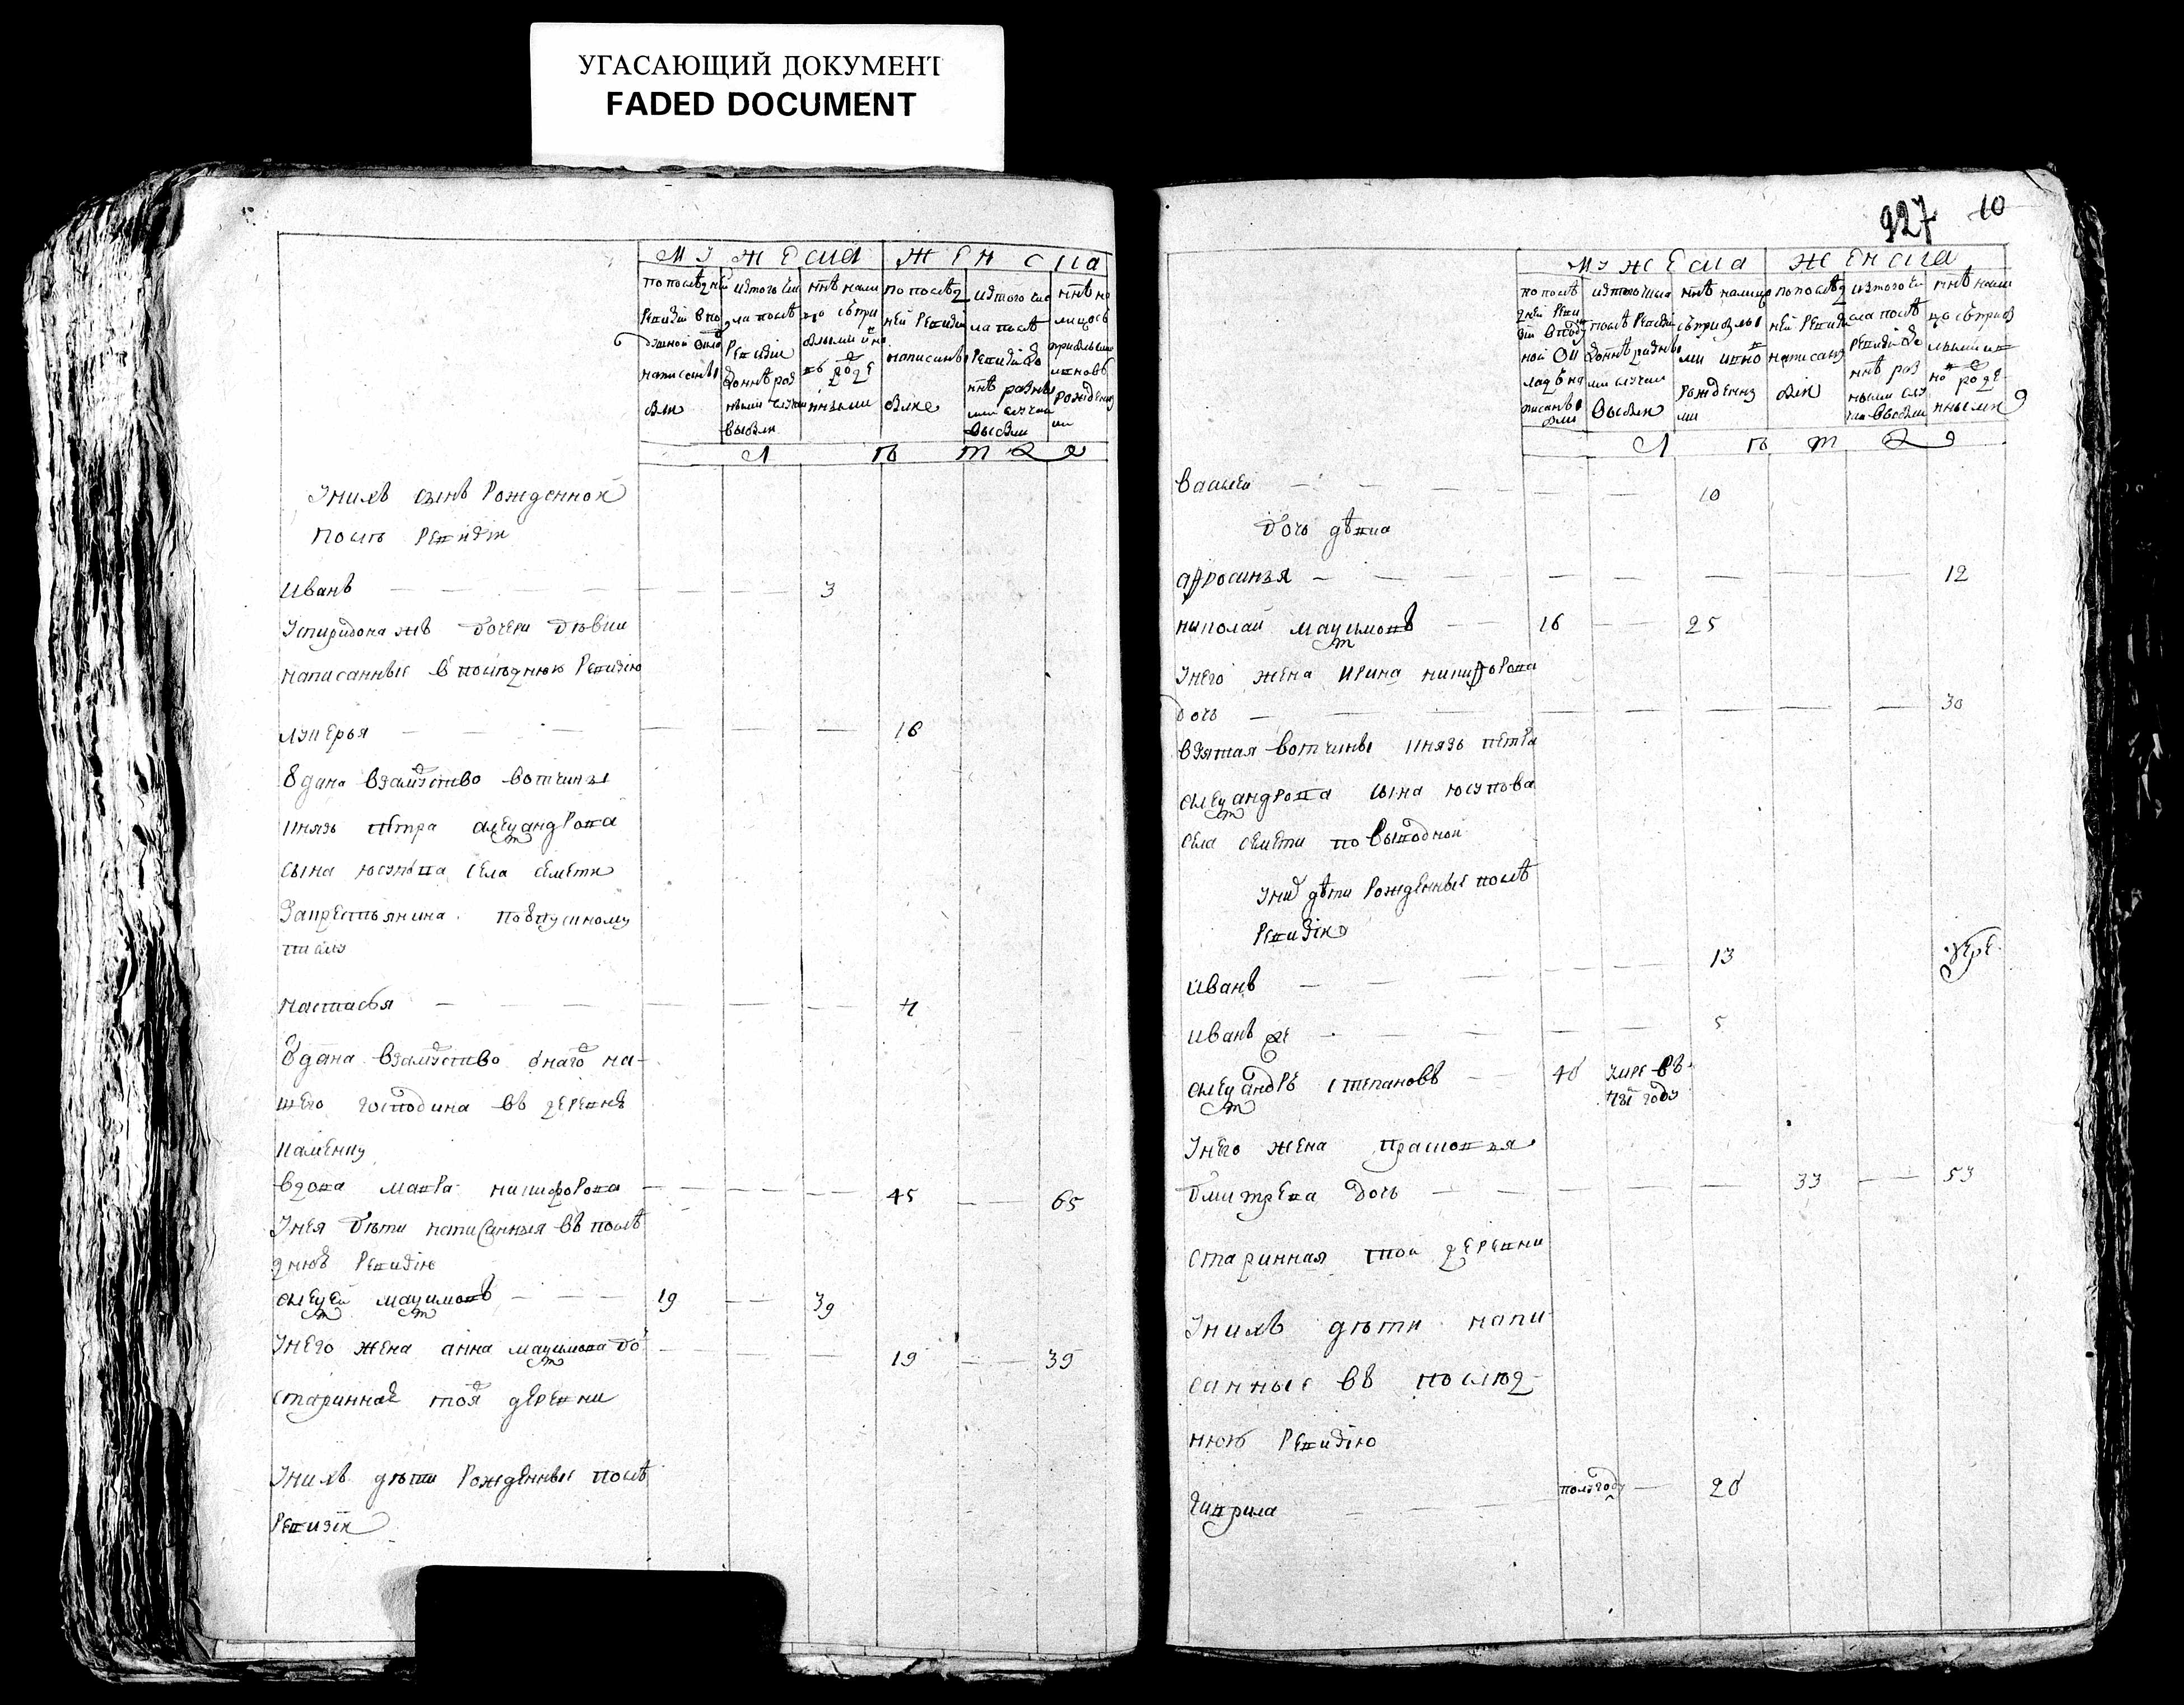 УГАСАЮЩИЙ ДОКУМЕНТ
FADED DOCUMENT
Мужеска Женска
по последней ревизiи в подушной оклад написаны были
из того числа после ревизiи до ныне разными случаи выбыли
ныне налицо с прибылыми и вновь рожденными
по последней ревизiи написаны были
из того числа после ревизiи до ныне разными случаи выбыли
ныне налицо с прибылыми и вновь рожденными
Лѣта
У нихъ сынъ рожденной
после ревизiи
Иванъ 3
У Спиридона жъ дочери девки
написанные в последнюю ревизiю
Лукерья 16
Вдана взамуство вотчины
князь Петра Александрова
сына Юсупова села
за крестьянина по отпускному
писму
Настасья 4
Одана взамуство онаго на-
шего господина въ деревне
вдова Мавра Никифорова 45 65
У нея дѣти написанныя въ послѣ
днюю ревизiю
Алексей Максимовъ 19 39
У него жена Анна Максимова до
19 39
старинная той деревни
У нихъ дѣти рожденные послѣ
ревизiи
927 10
Мужеска Женска
по последней ревизiи в подушной оклад написаны были
из того числа после ревизiи до ныне разными случаи выбыли
ныне налицо с прибылыми и вновь рожденными
по последней ревизiи написаны были
из того числа после ревизiи до ныне разными случаи выбыли
ныне налицо с прибылыми и вновь рожденными
Лѣта
Василей 10
дочь дѣвка
Афросинья 12
Николай Максимовъ 16 25
У него жена Ирина Никифорова
дочь 30
взятая вотчины князь Петра
Александрова сына Юсупова
села по выводной
У них дѣти рожденные послѣ
ревизiи
Иванъ 13
Иванъ же 5
Александръ Степановъ 40 умре въ
году
У него жена Прасковья
Дмитрева дочь 33 53
старинная той деревни
У нихъ дѣти напи
санные въ послед-
нюю ревизiю
Гаврила полгоду 20